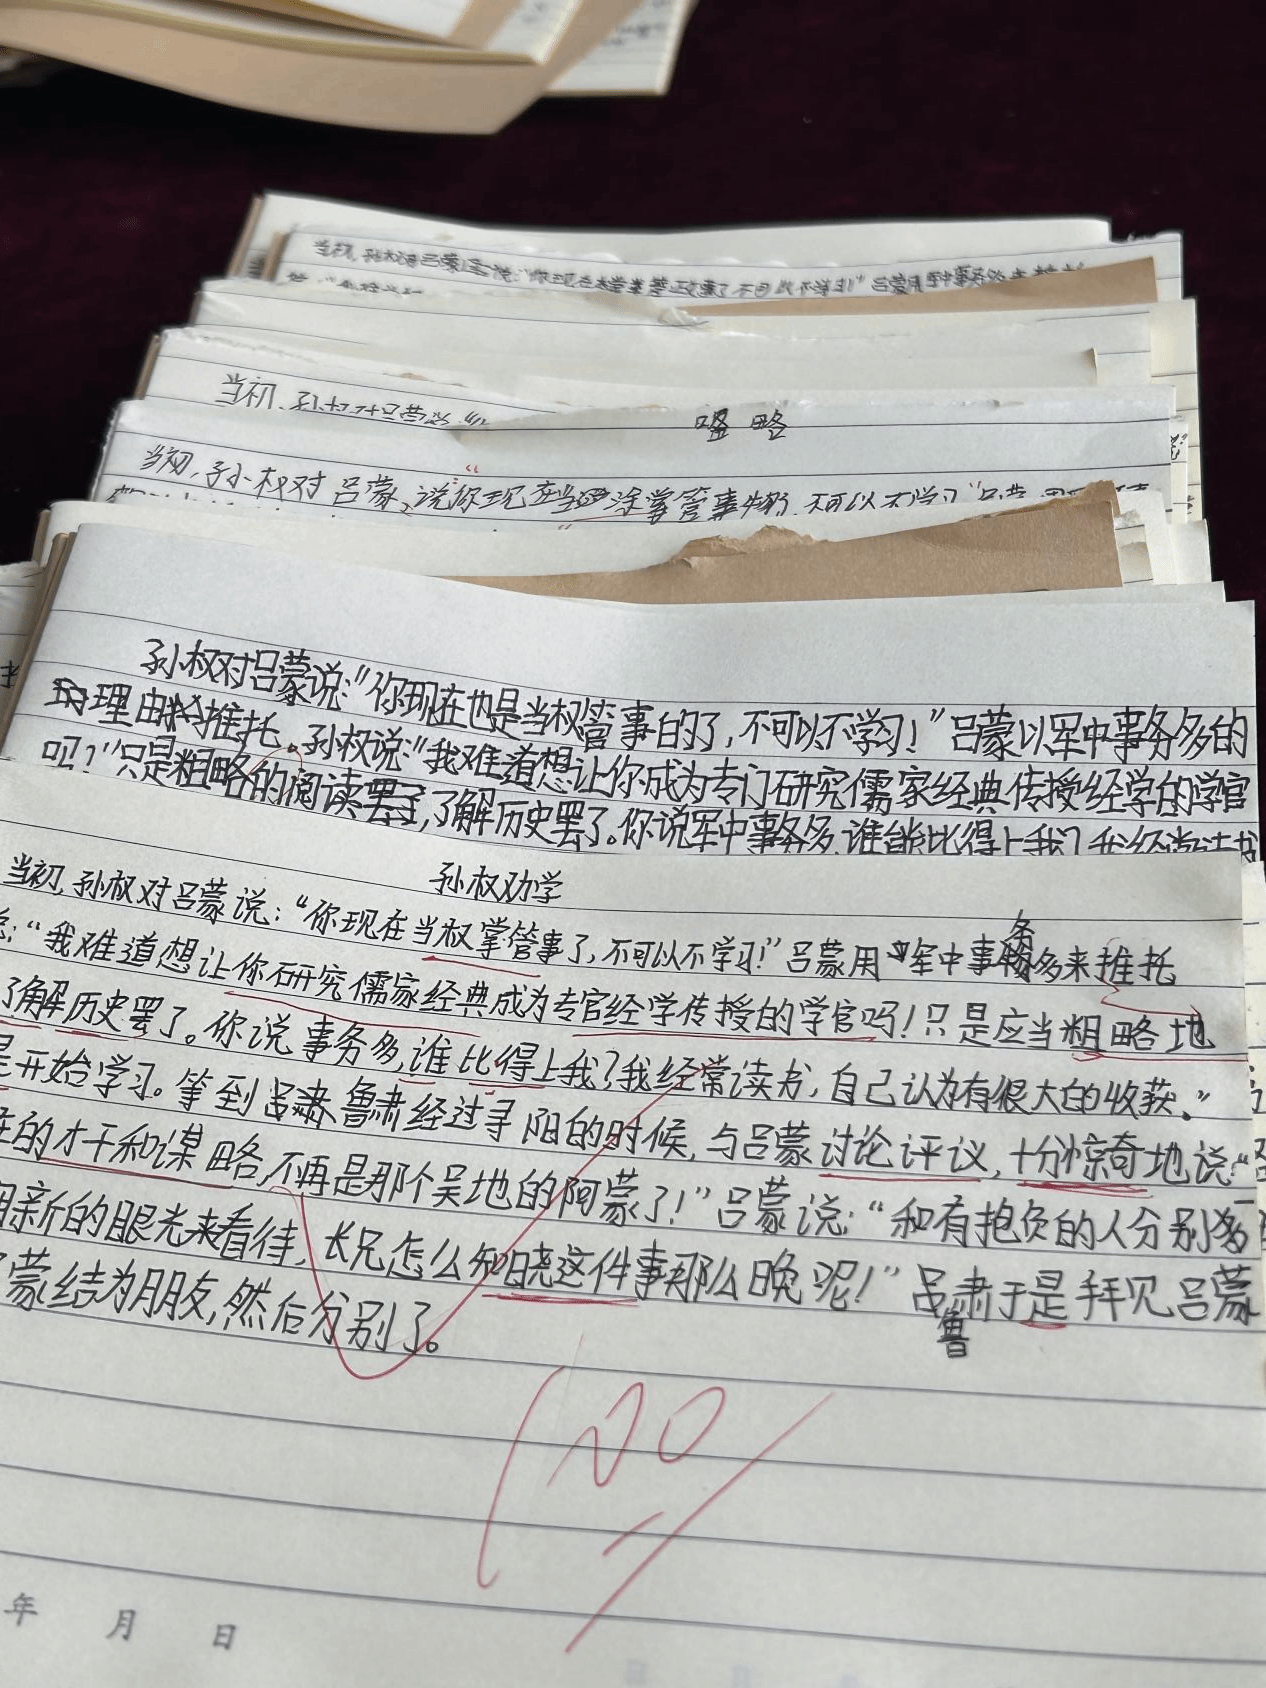 当初,孙权对吕蒙说:"你现在
当初,孙权对吕蒙说:"
嗧 略
当初,孙权对吕蒙,说"你现在当 涂掌管事务了,不可以不学习"吕蒙
孙权对吕蒙说:"你现在也是当权管事的了,不可以不学习!"吕蒙以军中事务多的
理由 推托。孙权说:"我难道想让你成为专门研究儒家经典传授经学的学官
吗?"只是粗略的阅读罢了,了解历史罢了。你说军中事务多,谁能比得上我?我经常读书
孙权劝学
当初,孙权对吕蒙说:"你现在当权掌管事了,不可以不学习!"吕蒙用 军中事务多来推托
:"我难道想让你研究儒家经典成为专官经学传授的学官吗!只是应当粗略地
了解历史罢了。你说事务多,谁比得上我?我经常读书,自己认为有很大的收获。"
是开始学习。等到吕肃鲁肃经过寻阳的时候,与吕蒙讨论评议,十分惊奇地说:"
在的才干和谋略,不再是那个吴地的阿蒙了!"吕蒙说:"和有抱负的人分别多
用新的眼光来看待,长兄怎么知晓这件事那么晚呢!"吕肃于是拜见吕蒙
鲁
蒙结为朋友,然后分别了。
100
年 月 日